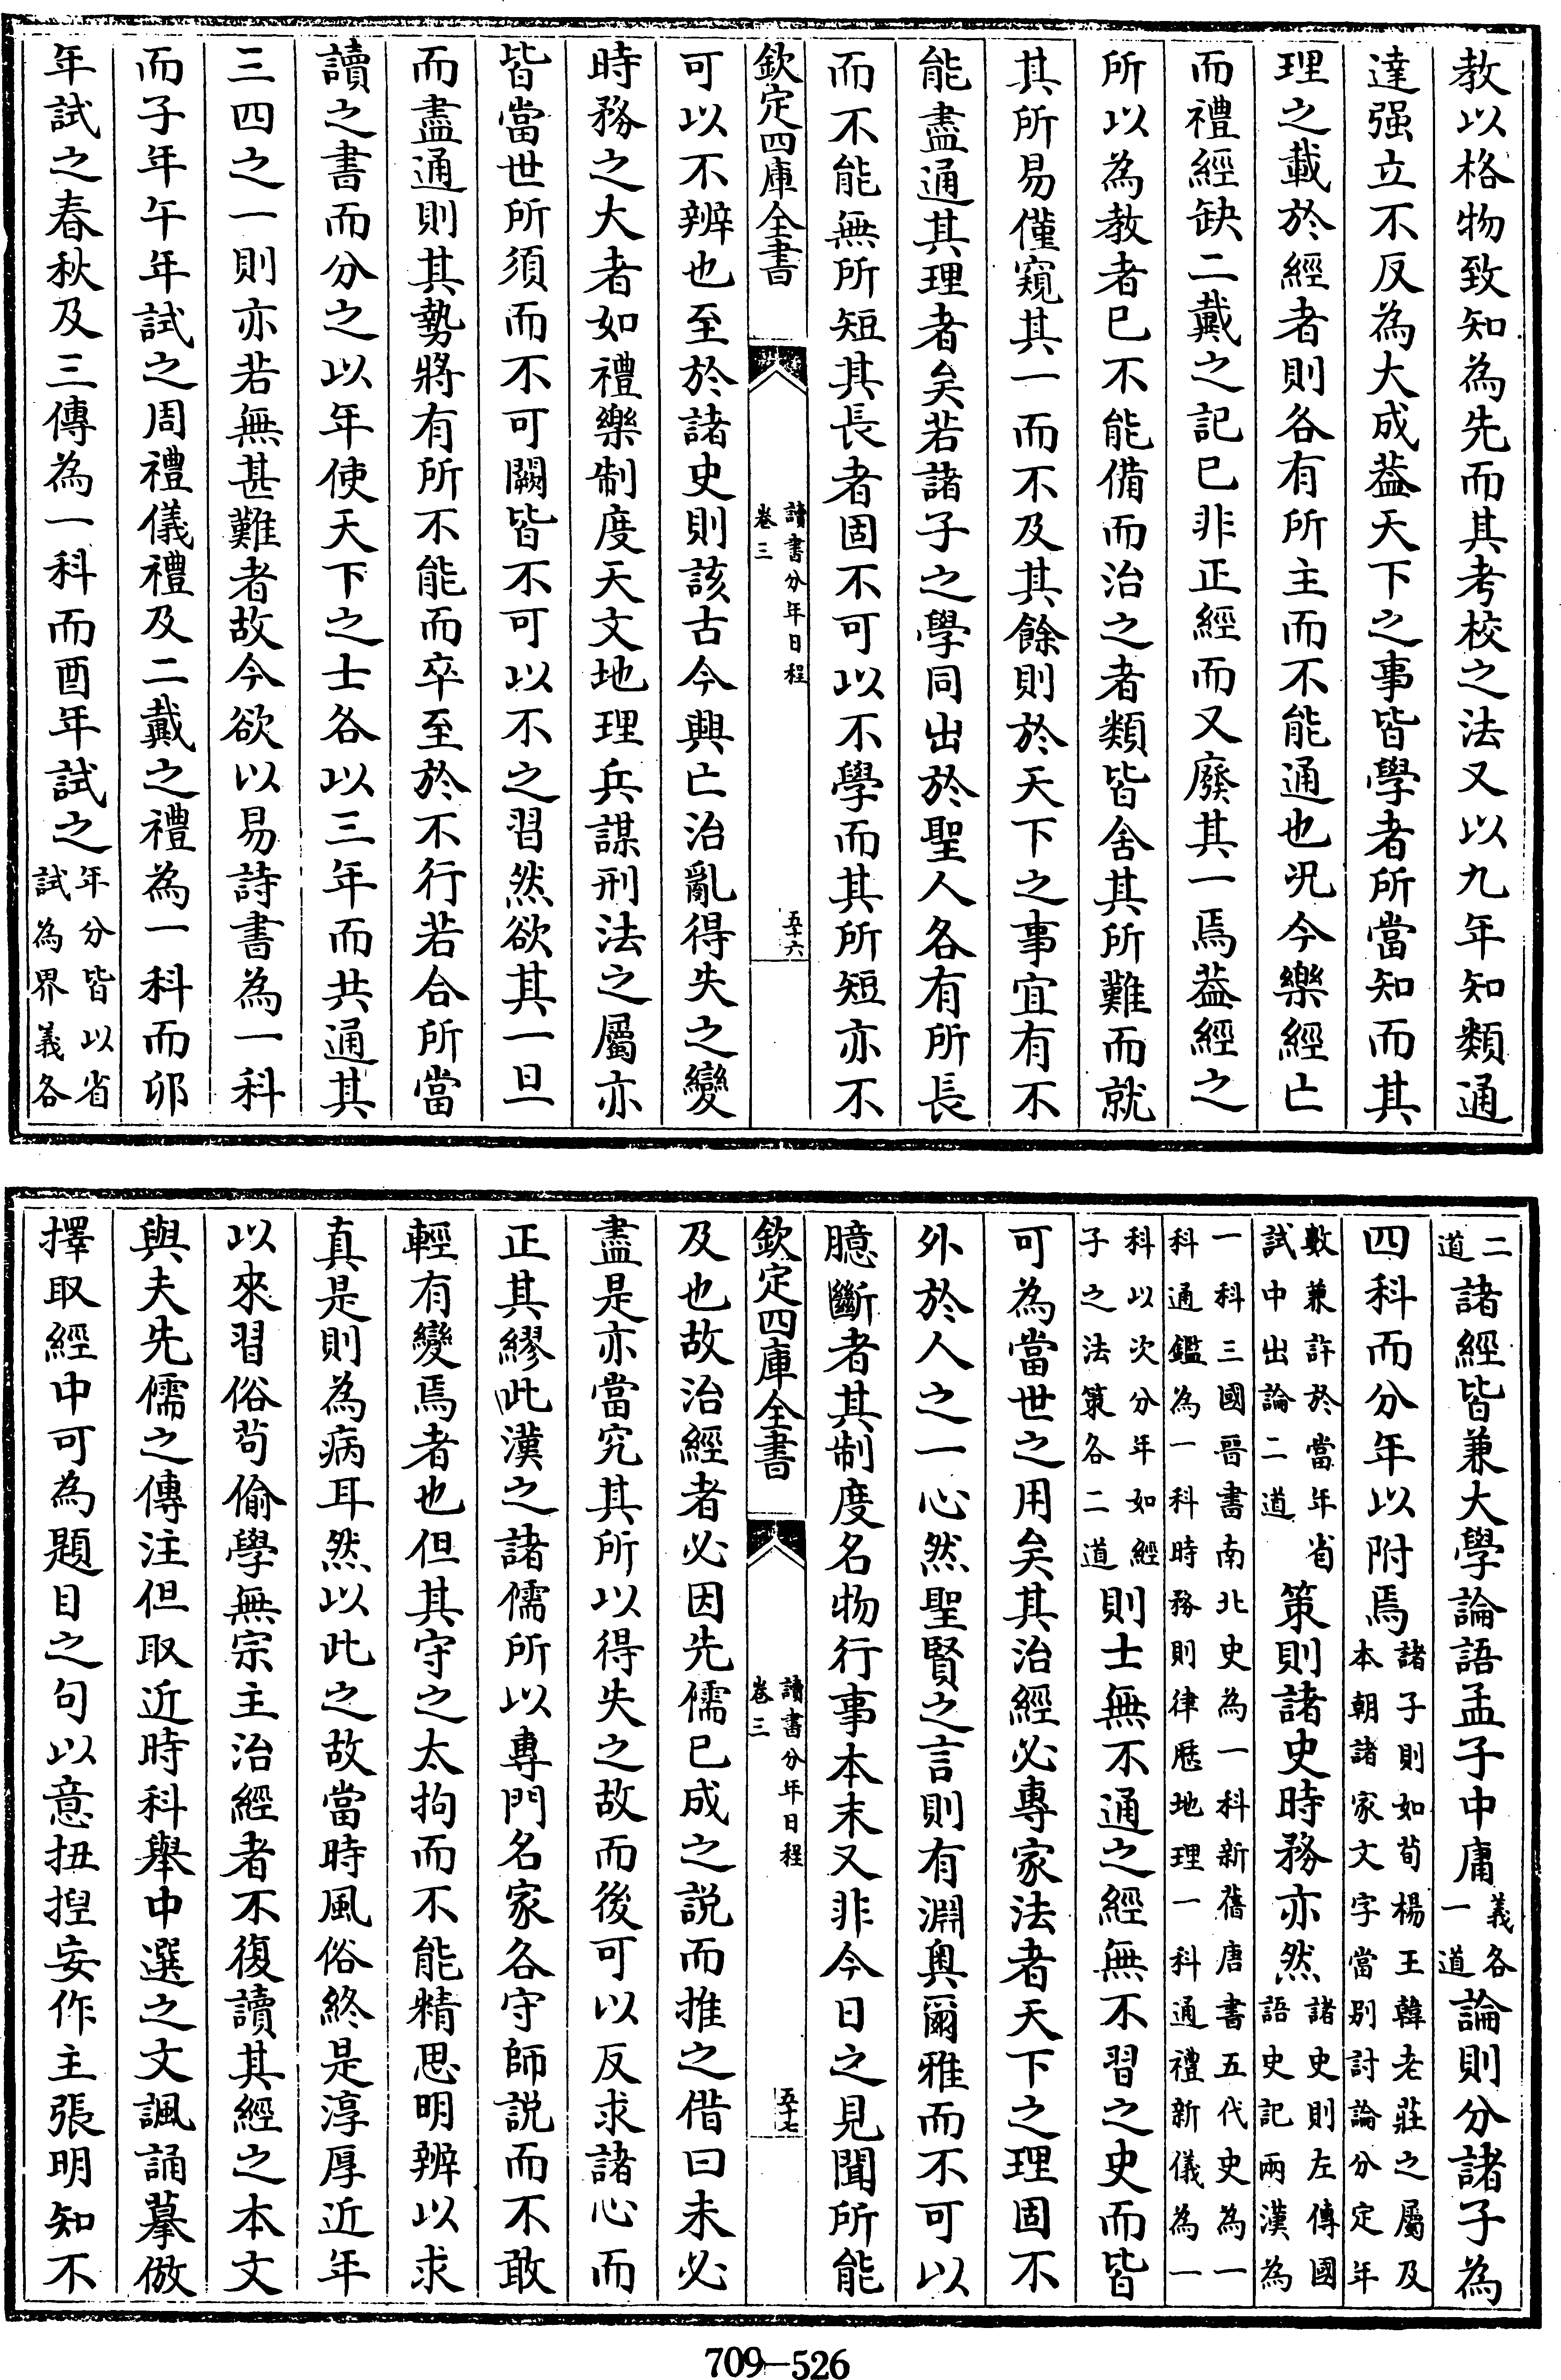 教以格物致知為先而其考校之法又以九年知類通
達强立不反為大成葢天下之事皆學者所當知而其
理之載於經者則各有所主而不能通也况今樂經亡
而禮經缺二戴之記已非正經而又廢其一焉葢經之
所以為教者已不能備而治之者類皆舍其所難而就
其所易僅窺其一而不及其餘則於天下之事宜有不
能盡通其理者矣若諸子之學同出於聖人各有所長
而不能無所短其長者固不可以不學而其所短亦不
欽定四庫全書
讀書分年日程
卷三
五十六
可以不辨也至於諸史則該古今興亡治亂得失之變
時務之大者如禮樂制度天文地理兵謀刑法之屬亦
皆當世所須而不可闕皆不可以不之習然欲其一旦
而盡通則其勢將有所不能而卒至於不行若合所當
讀之書而分之以年使天下之士各以三年而共通其
三四之一則亦若無甚難者故今欲以易詩書為一科
而子年午年試之周禮儀禮及二戴之禮為一科而卯
年試之春秋及三傳為一科而酉年試之年分皆以省
試為界義各
二
道諸經皆兼大學論語孟子中庸義各
一道論則分諸子為
四科而分年以附焉諸子則如荀楊王韓老莊之屬及
本朝諸家文字當别討論分定年
數兼許於當年省
試中出論二道策則諸史時務亦然諸史則左傳國
語史記兩漢為
一科三國晋書南北史為一科新舊唐書五代史為一
科通鑑為一科時務則律厯地理一科通禮新儀為一
科以次分年如經
子之法策各二道則士無不通之經無不習之史而皆
可為當世之用矣其治經必專家法者天下之理固不
外於人之一心然聖賢之言則有淵奥爾雅而不可以
臆斷者其制度名物行事本末又非今日之見聞所能
欽定四庫全書
讀書分年日程
卷三
五十七
及也故治經者必因先儒已成之説而推之借曰未必
盡是亦當究其所以得失之故而後可以反求諸心而
正其繆此漢之諸儒所以專門名家各守師説而不敢
輕有變焉者也但其守之太拘而不能精思明辨以求
真是則為病耳然以此之故當時風俗終是淳厚近年
以來習俗苟偷學無宗主治經者不復讀其經之本文
與夫先儒之傳注但取近時科舉中選之文諷誦摹倣
擇取經中可為題目之句以意扭揑妄作主張明知不
709—526